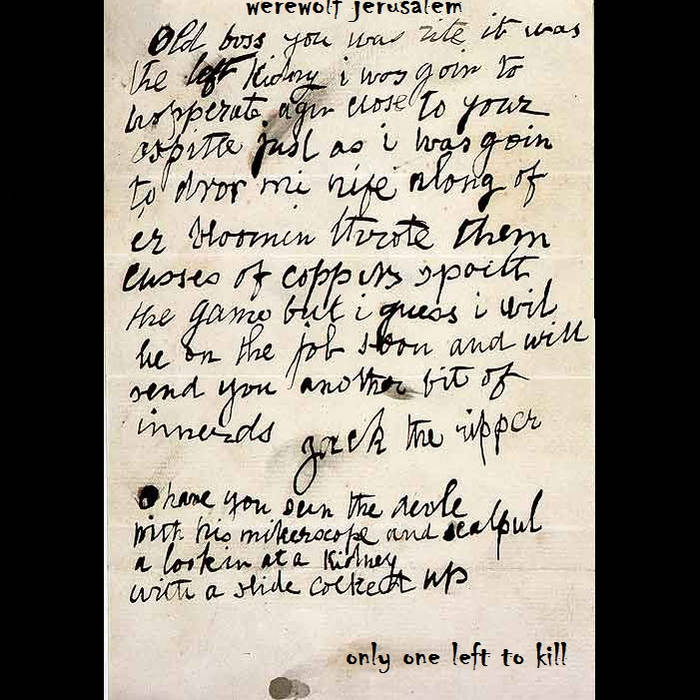 werewolf jerusalem
Old boss you was rite it was
the left kidny i was goin to
hopperate agin close to your
ospitle just as i was goin
to dror mi nife along of
er bloomin throte them
cusses of coppers spoilt
the game but i guess i wil
be on the job soon and will
send you another bit of
innerds Jack the ripper
O have you seen the devle
with his mikerscope and scalpul
a lookin at a Kidney
with a slide cocked up
only one left to kill